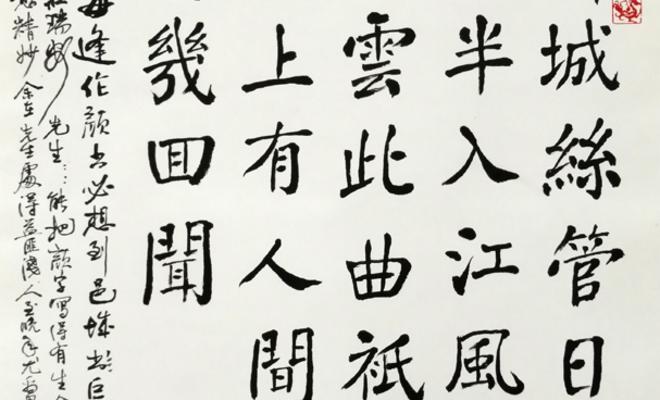 城絲管日
半入江風
雲此曲祗
上有人間
幾回聞
每逢作颜书必想到邑城书巨
瑞先生…能把颜字寫得有生
精妙余在先生處得益匪淺人至晚年尤